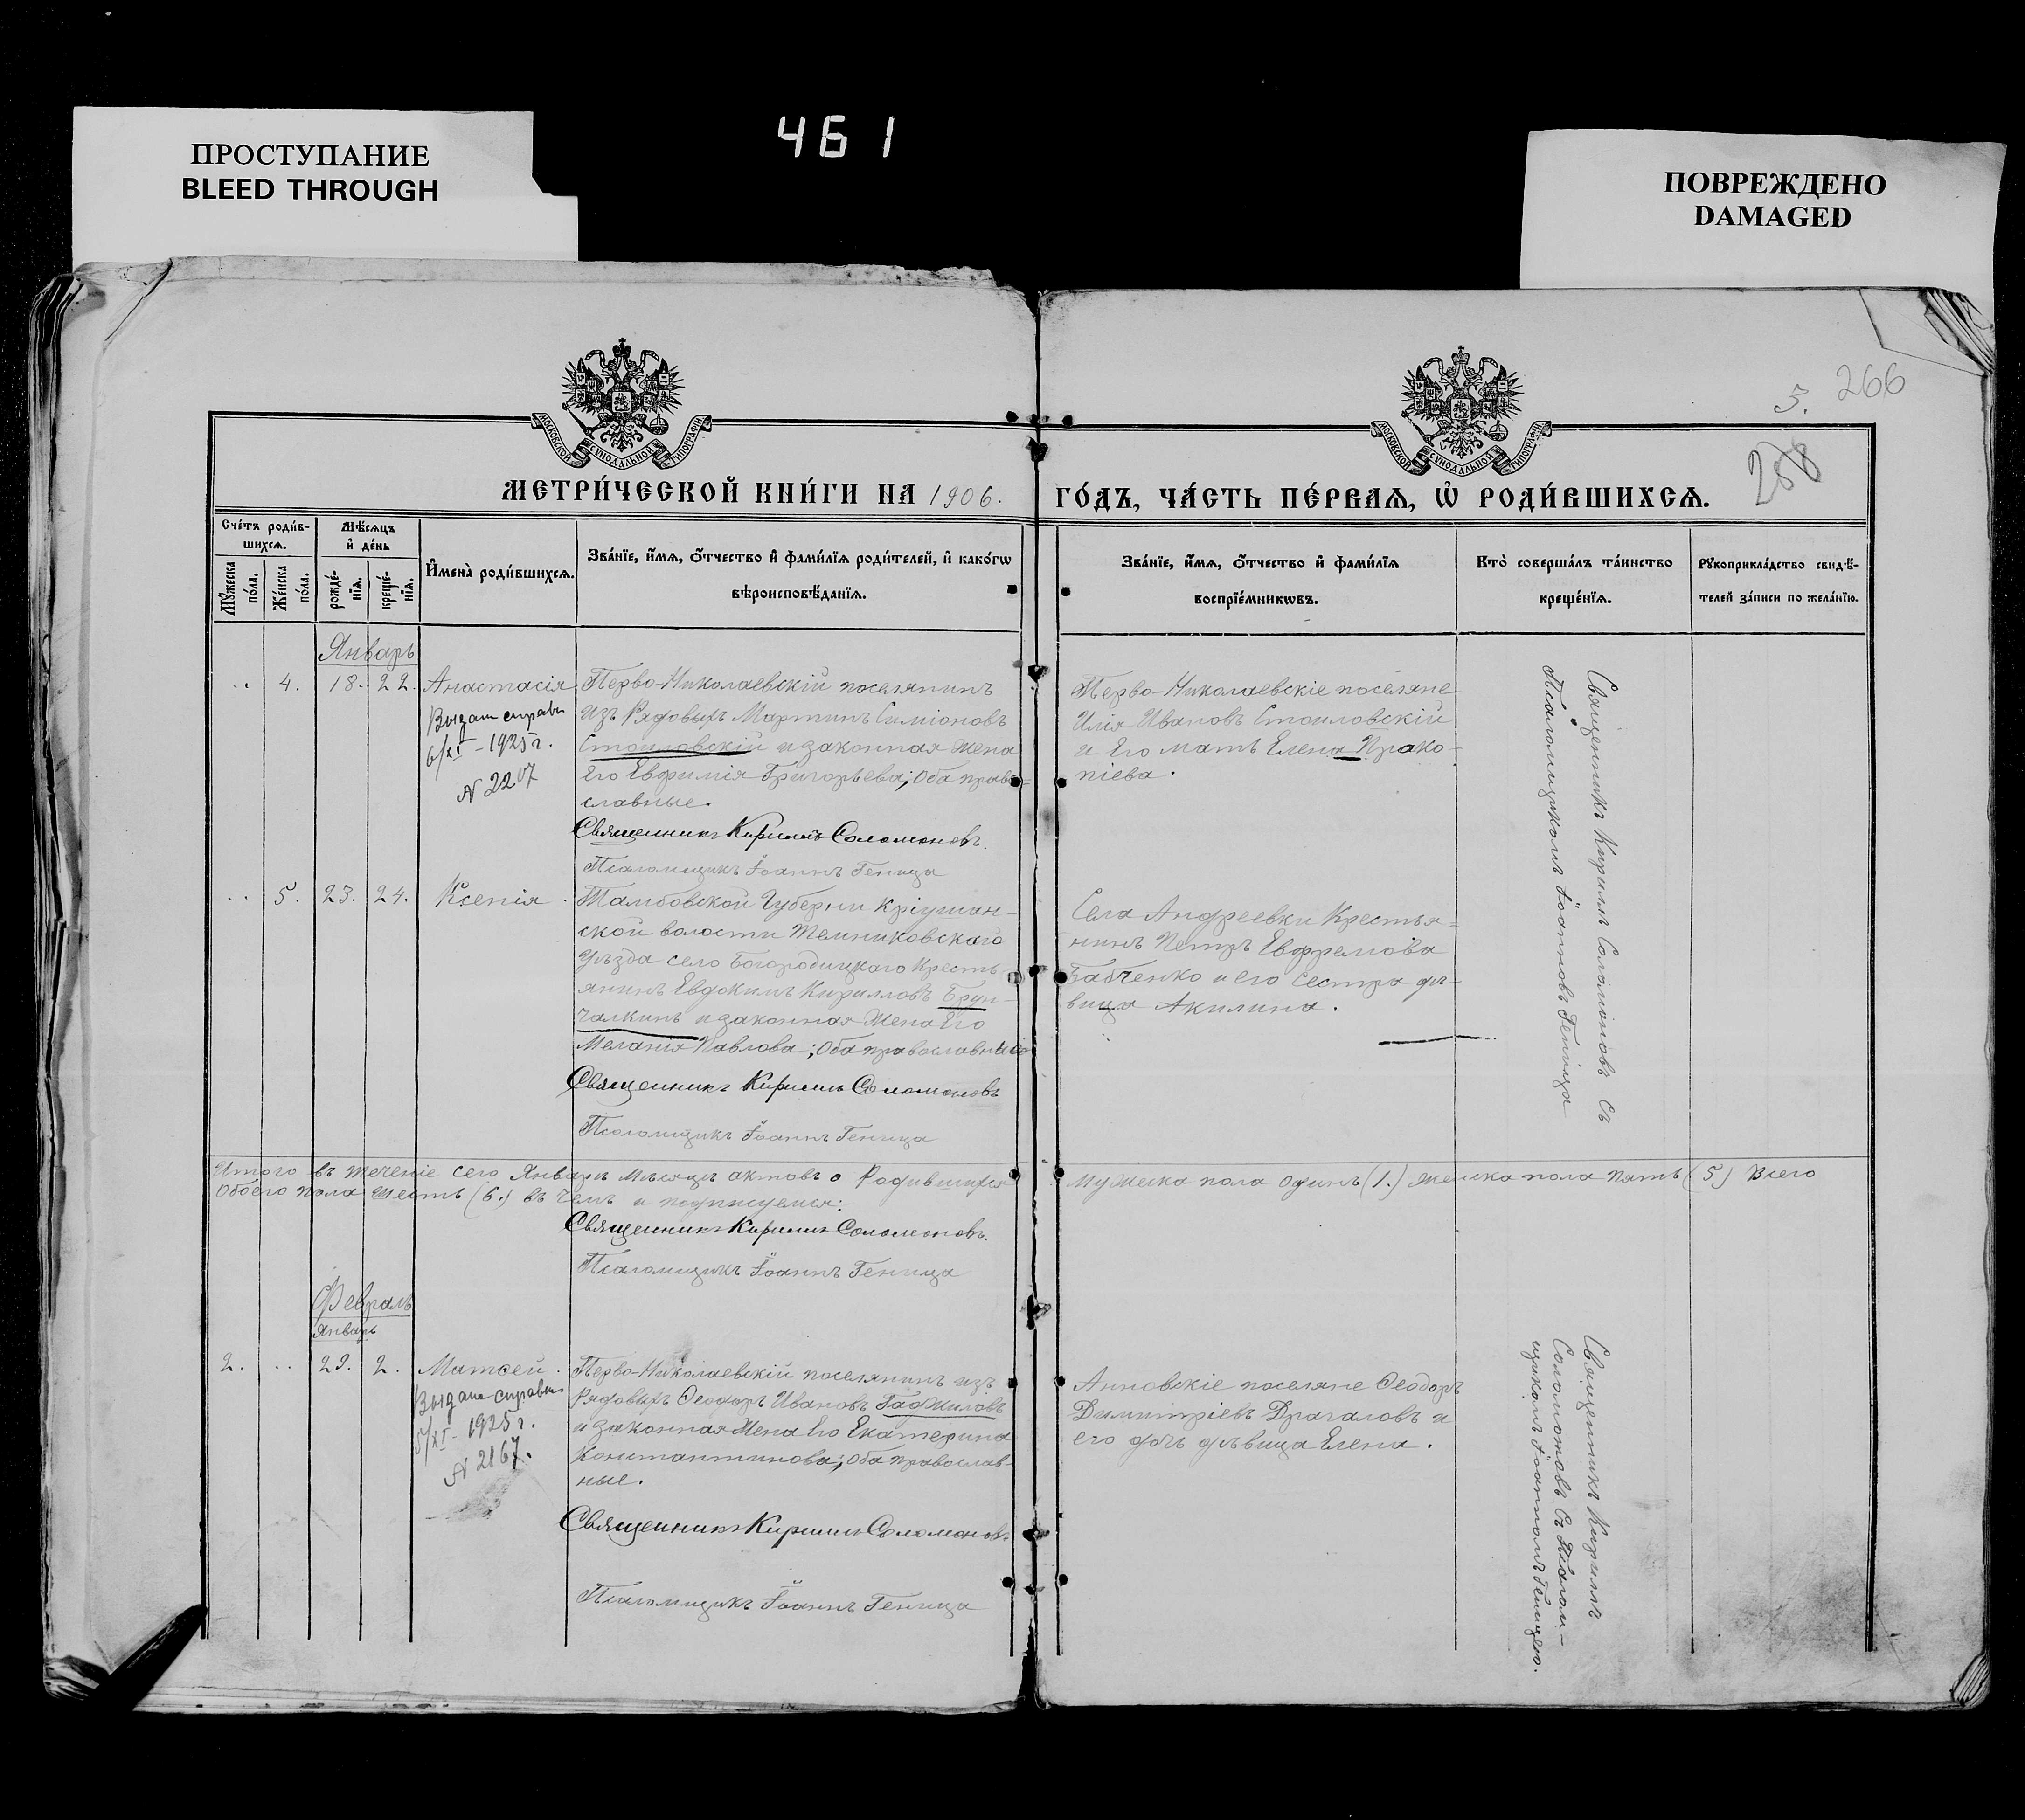 ПРОСТУПАНИЕ
BLEED THROUGH
461
ПОВРЕЖДЕНО
DAMAGED
5. 266
258
МОСКОВСКОЙ СУНОДАЛЬНОЙ ТИПОГРАФІИ
МОСКОВСКОЙ СУНОДАЛЬНОЙ ТИПОГРАФІИ
МЕТРИ́ЧЕСКОЙ КНИ́ГИ НА 1906. ГО́ДЪ, ЧА́СТЬ ПЕ́РВАѦ, Ѡ҆ РОДИ́ВШИХСѦ.
Сче́тъ роди́в-
шихсѧ.
Мꙋ́жеска по́ла.
Же́нска по́ла.
Мѣ́сѧцъ
и҆ де́нь
рожде́-
нїѧ.
креще́-
нїѧ.
И҆мена̀ роди́вшихсѧ.
Зва́нїе, и҆́мѧ, ѻ҆́тчество и҆ фами́лїѧ роди́телей, и҆ како́гѡ
вѣроисповѣ́данїѧ.
Зва́нїе, и҆́мѧ, ѻ҆́тчество и҆ фами́лїѧ
воспрїе́мникѡвъ.
Кто̀ соверша́лъ та́инство
креще́нїѧ.
Рꙋкоприкла́дство свидѣ́-
телей за́писи по жела́нїю.
Январь
.. 4. 18. 22. Анастасія
Выдан справк
6/XI - 1925 г.
N 2207
Перво-Николаевскій поселянинъ
изъ Рядовыхъ Мартинъ Симіоновъ
Стоиловскій и законная жена
Его Евфимія Григорьева; Оба право-
славные.
Священникъ Кириллъ Соломоновъ.
Псаломщикъ Іоаннъ Геница
Перво-Николаевскіе поселяне
Илія Ивановъ Стоиловскій
и Его мать Елена Прако-
піева.
Священникъ Кириллъ Соломоновъ съ
Псаломщикомъ Іоанновъ Геница
.. 5. 23. 24. Ксенія.
Тамбовской Губерніи Кріушан-
ской волости Темниковскаго
уѣзда село Богородицкаго Кресть-
янинъ Евдокимъ Кирилловъ Брун-
чалкинъ и законная Жена Его
Меланія Павлова; Оба православные
Священникъ Кириллъ Соломоновъ
Псаломщикъ Іоаннъ Геница
Села Андреевки Крестья-
нинъ Петръ Евфремова
Бабченко и его сестра дѣ-
вица Акилина.
Итого въ теченіе сего Январь мѣсяцъ актовъ о Родившихся мужеска пола Одинъ (1.) женска пола Пять (5) Всего
Обоего пола шесть (6.) въ чемъ и подписуемся:
Священникъ Кириллъ Соломоновъ.
Псаломщикъ Іоаннъ Геница
Февраль
Январь
2. .. 29. 2. Матөей.
Выдана справка
5/XI - 1925 г.
N 2167.
Перво-Николаевскій поселянинъ изъ
Рядовыхъ Ѳеодоръ Ивановъ Гаджиловъ
и законная Жена Его Екатерина
Константинова; Оба православ-
ные.
Священникъ Кириллъ Соломоновъ.
Псаломщикъ Іоаннъ Геница
Анновскіе поселяне Ѳеодоръ
Димитріевъ Драгаловъ и
его дочь дѣвица Елена.
Священникъ Кириллъ
Соломоновъ съ Псалом-
щикомъ Іоанномъ Геницею.